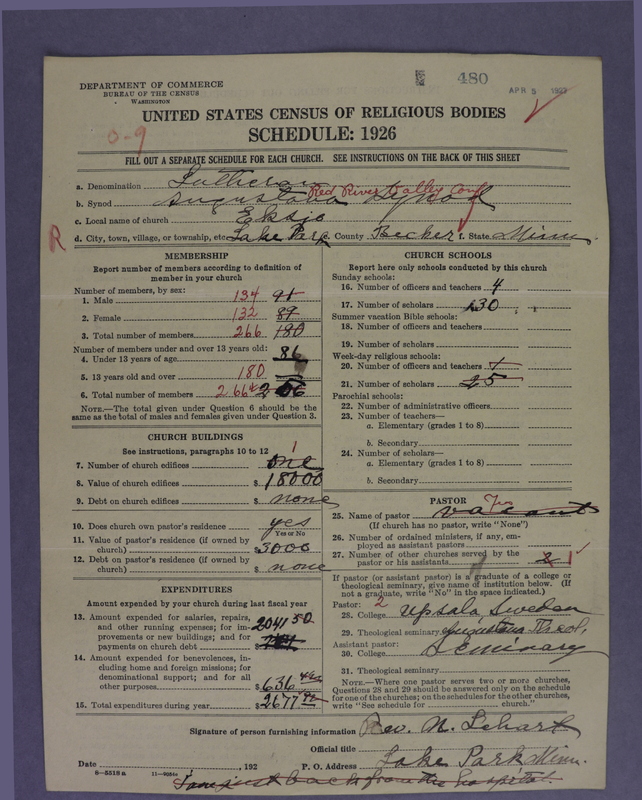 480
APR 5 1927
DEPARTMENT OF COMMERCE
BUREAU OF THE CENSUS
WASHINGTON
UNITED STATES CENSUS OF RELIGIOUS BODIES
SCHEDULE: 1926
0-9
FILL OUT A SEPARATE SCHEDULE FOR EACH CHURCH. SEE INSTRUCTIONS ON THE BACK OF THIS SHEET
a. Denomination Lutheran
Red River Valley Conf
b. Synod Augustana Synod
c. Local name of church Eksjo
R
d. City, town, village, or township, etc. Lake Park e. County Becker f. State Minn.
MEMBERSHIP
Report number of members according to definition of
member in your church
Number of members, by sex:
1. Male 134 91
2. Female 132 89
3. Total number of members 266 180
Number of members under and over 13 years old:
4. Under 13 years of age 86
5. 13 years old and over 180
6. Total number of members 266
NOTE.—The total given under Question 6 should be the
same as the total of males and females given under Question 3.
CHURCH BUILDINGS
See instructions, paragraphs 10 to 12
1
7. Number of church edifices one
8. Value of church edifices $ 18000
9. Debt on church edifices $ none
10. Does church own pastor's residence yes
Yes or No
11. Value of pastor's residence (if owned by
church) $ 3000
12. Debt on pastor's residence (if owned by
church) $ none
EXPENDITURES
Amount expended by your church during last fiscal year
13. Amount expended for salaries, repairs,
and other running expenses; for im-
provements or new buildings; and for
payments on church debt $ 2041 50
14. Amount expended for benevolences, in-
cluding home and foreign missions; for
denominational support; and for all
other purposes $ 636
15. Total expenditures during year $ 2677
CHURCH SCHOOLS
Report here only schools conducted by this church
Sunday schools:
16. Number of officers and teachers 4
17. Number of scholars 30
Summer vacation Bible schools:
18. Number of officers and teachers
19. Number of scholars
Week-day religious schools:
20. Number of officers and teachers 1
21. Number of scholars 25
Parochial schools:
22. Number of administrative officers
23. Number of teachers—
a. Elementary (grades 1 to 8)
b. Secondary
24. Number of scholars—
a. Elementary (grades 1 to 8)
b. Secondary
PASTOR
25. Name of pastor vacant
(If church has no pastor, write "None")
26. Number of ordained ministers, if any, em-
ployed as assistant pastors
27. Number of other churches served by the
pastor or his assistants 2 1
If pastor (or assistant pastor) is a graduate of a college or
theological seminary, give name of institution below. (If
not a graduate, write "No" in the space indicated.)
Pastor: 2
28. College Upsala, Sweden
29. Theological seminary Augustana Theol.
Assistant pastor: Seminary
30. College
31. Theological seminary
NOTE.—Where one pastor serves two or more churches,
Questions 28 and 29 should be answered only on the schedule
for one of the churches; on the schedules for the other churches,
write "See schedule for church."
Signature of person furnishing information Rev. N.
Official title
Date , 192 P. O. Address Lake Park Minn.
8—5518 a 11—9054a
I am just back from the hospital.